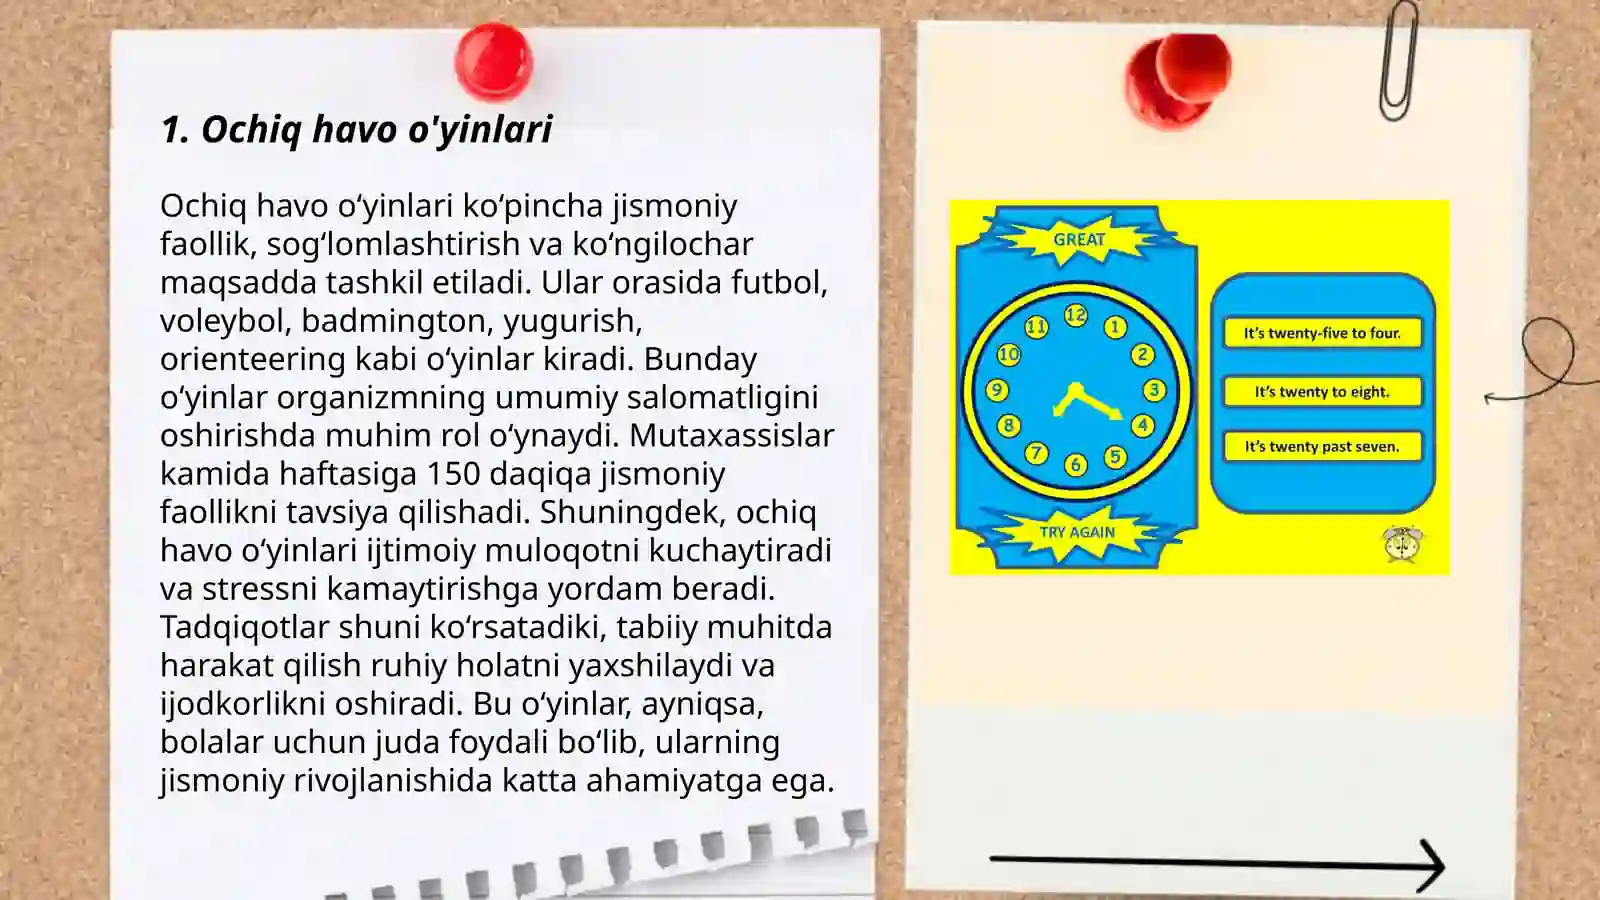 1. Ochiq havo o'yinlari
Ochiq havo o‘yinlari ko‘pincha jismoniy
faollik, sog‘lomlashtirish va ko‘ngilochar
maqsadda tashkil etiladi. Ular orasida futbol,
voleybol, badmington, yugurish,
orienteering kabi o‘yinlar kiradi. Bunday
o‘yinlar organizmning umumiy salomatligini
oshirishda muhim rol o‘ynaydi. Mutaxassislar
kamida haftasiga 150 daqiqa jismoniy
faollikni tavsiya qilishadi. Shuningdek, ochiq
havo o‘yinlari ijtimoiy muloqotni kuchaytiradi
va stressni kamaytirishga yordam beradi.
Tadqiqotlar shuni ko‘rsatadiki, tabiiy muhitda
harakat qilish ruhiy holatni yaxshilaydi va
ijodkorlikni oshiradi. Bu o‘yinlar, ayniqsa,
bolalar uchun juda foydali bo‘lib, ularning
jismoniy rivojlanishida katta ahamiyatga ega.
GREAT
12
11 1
10 2
9 3
8 4
7 5
6
TRY AGAIN
It’s twenty-five to four.
It’s twenty to eight.
It’s twenty past seven.